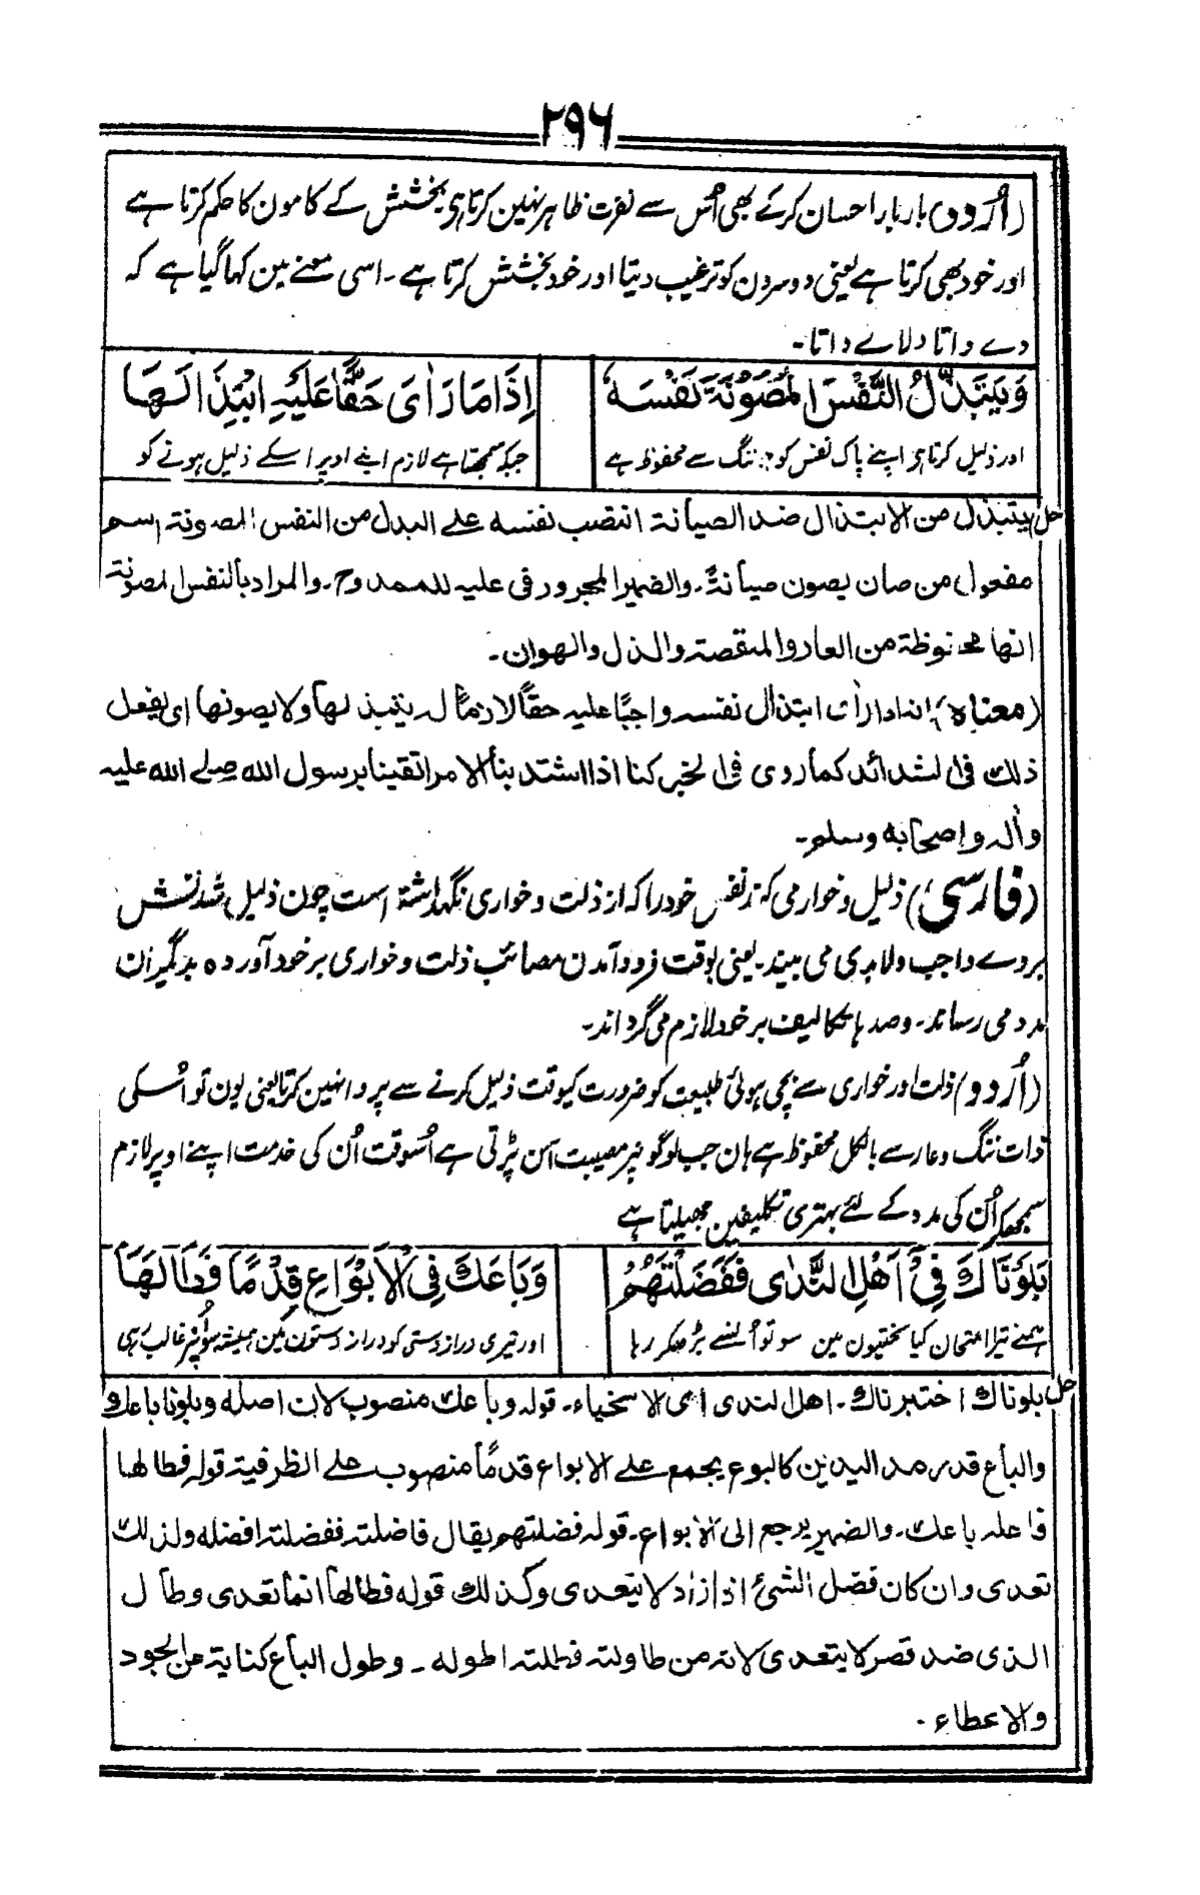 ۲۹۶
(اُردو) بار بار احسان کرکے بھی اُس سے نفرت ظاہر نہین کرتا ہی بخشش کے کامون کا حکم کرتا ہے
اور خود بھی کرتا ہے یعنی دوسرون کو ترغیب دیتا اور خود بخشش کرتا ہے۔ اسی معنے مین کہا گیا ہے کہ
دے داتا دلاے داتا۔
وَيَبْتَذِلُ النَّفْسَ الْمَصُوْنَةَ نَفْسَهٗ
اِذَا مَا رَاٰى حَقًّا عَلَيْهِ ابْتِذَالَهَا
اور ذلیل کرتا ہی اپنے پاک نفس کو جو ننگ سے محفوظ ہے
جبکہ سمجھتا ہے لازم اپنے اوپر اسکے ذلیل ہونے کو
حل يبتذل من الابتذال ضد الصيانة انتصب نفسه على البدل من النفس المصونة اسم
مفعول من صان يصون صيانةً۔ والضمير المجرور فى عليه للممدوح۔ والمراد بالنفس المصونة
انها محفوظة من العار والمنقصة والذل والهوان۔
(معناه) انه اذا رأت ابتذال نفسه واجبًا عليه حقًا لازمًا له يبتذلها ولا يصونها اى يفعل
ذلك فى الشدائد كما روى فى الخبر كنا اذا اشتد بنا الامر اتقينا برسول الله صلے الله عليه
واٰله واصحابه وسلم۔
(فارسی) ذلیل و خوار می کند نفس خود را کہ از ذلت و خواری نگہداشتہ است چون ذلیل شدنش
بروے واجب ولابدی می بیند۔ یعنی بوقت فرود آمدن مصائب ذلت و خواری بر خود آوردہ بدیگران
مدد می رساند۔ وصدہا تکالیف بر خود لازم می گرداند۔
(اُردو) ذلت اور خواری سے بچی ہوئی طبیعت کو ضرورت کیوقت ذلیل کرنے سے پروا نہین کرتا یعنی یون تو اُسکی
ذات ننگ و عار سے بالکل محفوظ ہے ہان جب لوگونپر مصیبت آن پڑتی ہے اُسوقت اُن کی خدمت اپنے اوپر لازم
سمجھکر اُن کی مدد کے لئے بہتری تکلیفین جھیلتا ہے
بَلَوْنَاكَ فِىْ اَهْلِ النَّدٰى فَفَضَلْتَهُمْ
وَبَاعَكَ فِى الْاَبْوَاعِ قِدْمًا فَطَالَهَا
ہمنے تیرا امتحان کیا سخیون مین سو تو اُنسے بڑھکر رہا
اور تیری دراز دستی کو دراز دستون مین ہمیشہ سو اُنپر غالب رہی
حل بلوناك اختبرناك۔ اهل الندى اى الاسخياء۔ قوله وباعك منصوب لان اصله وبلونا باعك
والباع قدر مد اليدين كالبوع يجمع على الابواع قدمًا منصوب على الظرفية قوله فطالها
فاعله باعك۔ والضمير يرجع الى الابواع۔ قوله فضلتهم يقال فاضلته ففضلته افضله ولذلك
تعدى وان كان فضل الشئ اذا زاد لا يتعدى وكذلك قوله فطالها انما تعدى وطال
الذى ضد قصر لا يتعدى لانه من طاولته فطلته اطوله۔ وطول الباع كناية من الجود
والاعطاء۔